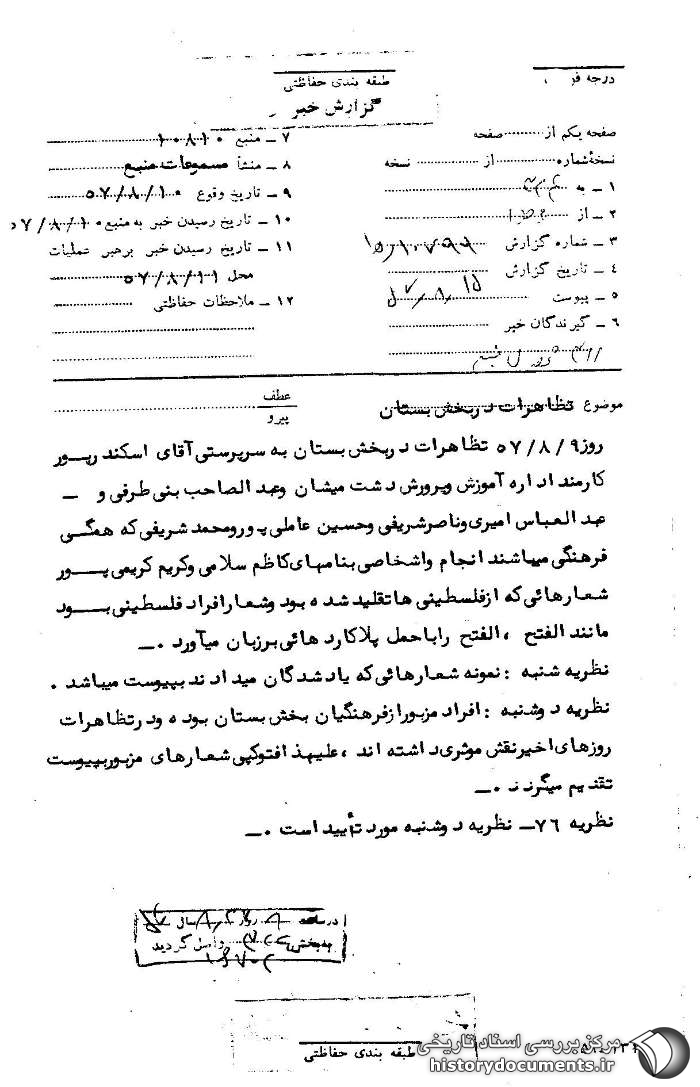 درجه فو
طبقه بندی حفاظتی
گزارش خبر
صفحه یکم از ........ صفحه
نسخهٔ شماره ........ از ........ نسخه
۱ ـ به
۲ ـ از
۳ ـ شماره گزارش
۴ ـ تاریخ گزارش
۵ ـ پیوست
۶ ـ گیرندگان خبر
۷ ـ منبع ۱۰۸۱۰
۸ ـ منشأ مسموعات منبع
۹ ـ تاریخ وقوع ۵۷/۸/۱۰
۱۰ ـ تاریخ رسیدن خبر به منبع ۵۷/۸/۱۰
۱۱ ـ تاریخ رسیدن خبر برهبر عملیات
محل ۵۷/۸/۱۱
۱۲ ـ ملاحظات حفاظتی
عطف
پیرو
موضوع تظاهرات دربخش بستان
روز ۵۷/۸/۹ تظاهرات دربخش بستان به سرپرستی آقای اسکندرپور
کارمند اداره آموزش وپرورش دشت میشان وعبدالصاحب بنی طرفی و ـ
عبدالعباس امیری وناصرشریفی وحسین عاملی پورومحمد شریفی که همگی
فرهنگی میباشند انجام واشخاصی بنامهای کاظم سلامی وکریم کریمی پور
شعارهائی که ازفلسطینی هاتقلید شده بود وشعارافراد فلسطینی بود
مانند الفتح ، الفتح راباحمل پلاکارد هائی برزبان میآورد ۰ـ
نظریه شنبه : نمونه شعارهائی که یادشدگان میدادند بپیوست میباشد .
نظریه دوشنبه : افراد مزبورازفرهنگیان بخش بستان بوده ودرتظاهرات
روزهای اخیرنقش موثری داشته اند ، علیهذا فتوکپی شعارهای مزبوربپیوست
تقدیم میگردد ۰ـ
نظریه ۷۶ـ نظریه دوشنبه مورد تأیید است ۰ـ
در ساعت ۸ روز سال
به بخش واصل گردید
طبقه بندی حفاظتی
مرکز بررسی اسناد تاریخی
historydocuments.ir